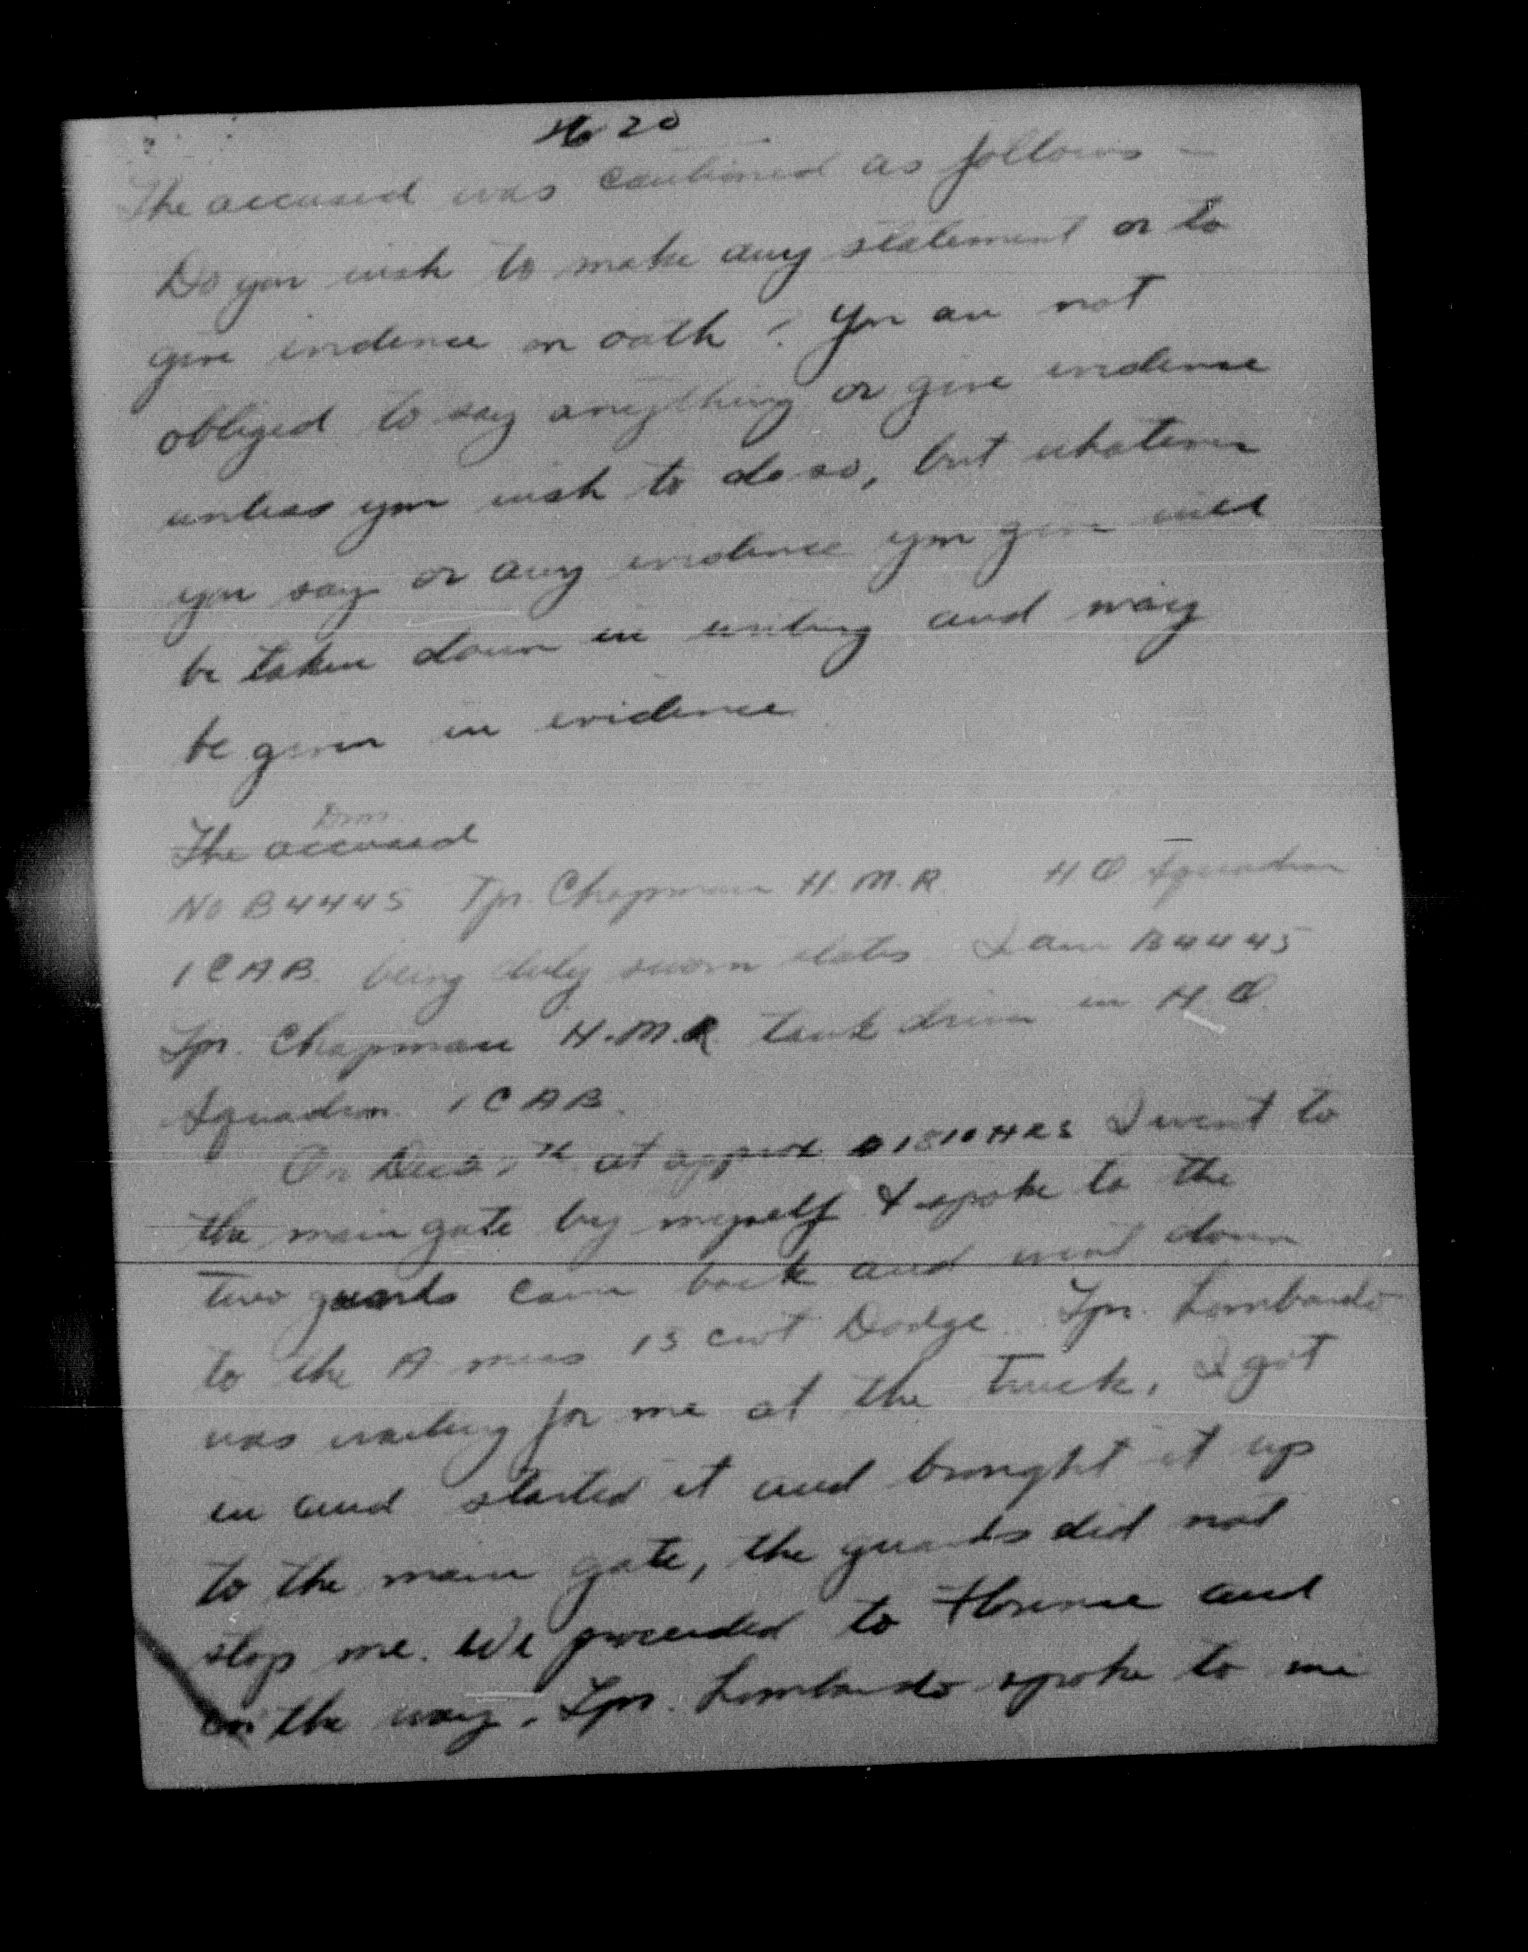 20
The accused was cautioned as follows –
Do you wish to make any statement or to
give evidence on oath? You are not
obliged to say anything or give evidence
unless you wish to do so, but whatever
you say or any evidence you give will
be taken down in writing and may
be given in evidence
The accused
No B4445 Tpr. Chapman H.M.R. H Q Squadron
1 C A B. being duly sworn states I am B4445
Tpr. Chapman H.M.R. tank driver in H.Q.
Squadron 1 C A B.
On Dec at approx 1810 HRS I went to
the main gate by myself & spoke to the
two guards came back and went down
to the A mess 15 cwt Dodge. Tpr. Lombardo
was waiting for me at the truck, I got
in and started it and brought it up
to the main gate, the guards did not
stop me. We proceeded to Florence and
on the way. Tpr. Lombardo spoke to me